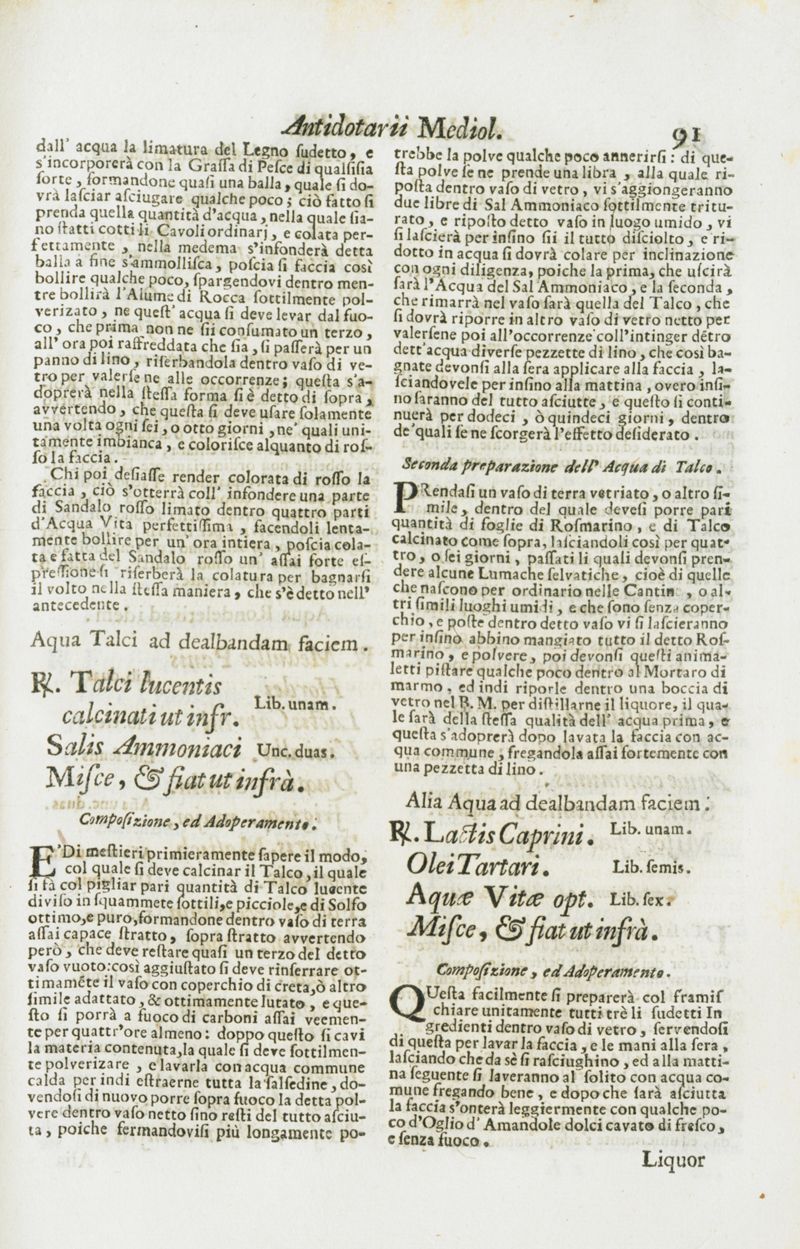 Antidotarii Mediol. 91
dall' acqua la limatura del Legno ſudetto, e
s'incorporerà con la Graſſa di Peſce di qualſiſia
ſorte, formandone quaſi una balla, quale ſi do-
vrà laſciar aſciugare qualche poco; ciò fatto ſi
prenda quella quantità d'acqua, nella quale ſia-
no ſtatti cotti li Cavoli ordinarj, e colata per-
fettamente, nella medema s'infonderà detta
balla a fine s'ammolliſca, poſcia ſi faccia così
bollire qualche poco, ſpargendovi dentro men-
tre bollirà l'Alume di Rocca ſottilmente pol-
verizato, ne queſt' acqua ſi deve levar dal fuo-
co, che prima non ne ſii conſumato un terzo,
all' ora poi raffreddata che ſia, ſi paſſerà per un
panno di lino, riſerbandola dentro vaſo di ve-
tro per valerſene alle occorrenze; queſta s'a-
doprerà nella ſteſſa forma ſi è detto di ſopra,
avvertendo, che queſta ſi deve uſare ſolamente
una volta ogni ſei, o otto giorni, ne' quali uni-
tamente imbianca, e coloriſce alquanto di roſ-
ſo la faccia.
Chi poi deſiaſſe render colorata di roſſo la
faccia, ciò s'otterrà coll' infondere una parte
di Sandalo roſſo limato dentro quattro parti
d'Acqua Vita perfettiſſima, facendoli lenta-
mente bollire per un' ora intiera, poſcia cola-
ta e fatta del Sandalo roſſo un' aſſai forte eſ-
preſſione ſi riſerberà la colatura per bagnarſi
il volto nella ſteſſa maniera, che s'è detto nell'
antecedente.
Aqua Talci ad dealbandam faciem.
℞. Talci lucentis
calcinati ut infr. Lib. unam.
Salis Ammoniaci Unc. duas.
Miſce, & fiat ut infrà.
Compoſizione, ed Adoperamento.
E'Di meſtieri primieramente ſapere il modo,
col quale ſi deve calcinar il Talco, il quale
ſi fà col pigliar pari quantità di Talco lucente
diviſo in ſquammete ſottili, e picciole, e di Solfo
ottimo, e puro, formandone dentro vaſo di terra
aſſai capace ſtratto, ſopra ſtratto avvertendo
però, che deve reſtare quaſi un terzo del detto
vaſo vuoto: così aggiuſtato ſi deve rinſerrare ot-
timamẽte il vaſo con coperchio di creta, ò altro
ſimile adattato, & ottimamente lutato, e que-
ſto ſi porrà a fuoco di carboni aſſai veemen-
te per quattr'ore almeno: doppo queſto ſi cavi
la materia contenuta, la quale ſi deve ſottilmen-
te polverizare, e lavarla con acqua commune
calda per indi eſtraerne tutta la ſalſedine, do-
vendoſi di nuovo porre ſopra fuoco la detta pol-
vere dentro vaſo netto ſino reſti del tutto aſciu-
ta, poiche fermandoviſi più longamente po-
trebbe la polve qualche poco annerirſi: di que-
ſta polve ſe ne prende una libra, alla quale ri-
poſta dentro vaſo di vetro, vi s'aggiongeranno
due libre di Sal Ammoniaco ſottilmente tritu-
rato, e ripoſto detto vaſo in luogo umido, vi
ſi laſcierà per inſino ſii il tutto diſciolto, e ri-
dotto in acqua ſi dovrà colare per inclinazione
con ogni diligenza, poiche la prima, che uſcirà
ſarà l'Acqua del Sal Ammoniaco, e la ſeconda,
che rimarrà nel vaſo ſarà quella del Talco, che
ſi dovrà riporre in altro vaſo di vetro netto per
valerſene poi all'occorrenze coll'intinger dẽtro
dett'acqua diverſe pezzette di lino, che così ba-
gnate devonſi alla ſera applicare alla faccia, la-
ſciandovele per inſino alla mattina, overo inſi-
no ſaranno del tutto aſciutte, e queſto ſi conti-
nuerà per dodeci, ò quindeci giorni, dentro
de'quali ſe ne ſcorgerà l'effetto deſiderato.
Seconda preparazione dell' Acqua di Talco.
PRendaſi un vaſo di terra vetriato, o altro ſi-
mile, dentro del quale deveſi porre pari
quantità di foglie di Roſmarino, e di Talco
calcinato come ſopra, laſciandoli così per quat-
tro, o ſei giorni, paſſati li quali devonſi pren-
dere alcune Lumache ſelvatiche, cioè di quelle
che naſcono per ordinario nelle Cantin , o al-
tri ſimili luoghi umidi, e che ſono ſenza coper-
chio, e poſte dentro detto vaſo vi ſi laſcieranno
per inſino abbino mangiato tutto il detto Roſ-
marino, e polvere, poi devonſi queſti anima-
letti piſtare qualche poco dentro al Mortaro di
marmo, ed indi riporle dentro una boccia di
vetro nel B. M. per diſtillarne il liquore, il qua-
le ſarà della ſteſſa qualità dell' acqua prima, e
queſta s'adoprerà dopo lavata la faccia con ac-
qua commune, fregandola aſſai fortemente con
una pezzetta di lino.
Alia Aqua ad dealbandam faciem.
℞. Lactis Caprini. Lib. unam.
Olei Tartari. Lib. ſemis.
Aquæ Vitæ opt. Lib. ſex.
Miſce, & fiat ut infrà.
Compoſizione, ed Adoperamento.
QUeſta facilmente ſi preparerà col framiſ
chiare unitamente tutti trè li ſudetti In
gredienti dentro vaſo di vetro, ſervendoſi
di queſta per lavar la faccia, e le mani alla ſera,
laſciando che da sè ſi raſciughino, ed alla matti-
na ſeguente ſi laveranno al ſolito con acqua co-
mune fregando bene, e dopo che ſarà aſciutta
la faccia s'onterà leggiermente con qualche po-
co d'Oglio d' Amandole dolci cavato di freſco,
e ſenza fuoco.
Liquor